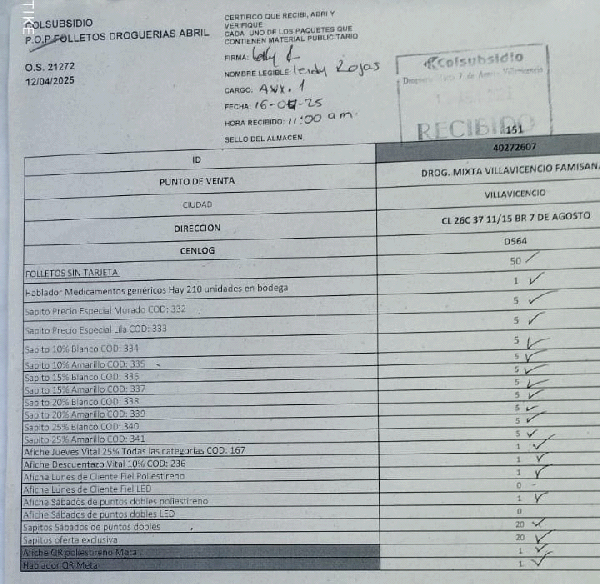 TIKE
COLSUBSIDIO
P.O.P FOLLETOS DROGUERIAS ABRIL
O.S. 21272
12/04/2025
CERTIFICO QUE RECIBI, ABRI Y
VERIFIQUE
CADA UNO DE LOS PAQUETES QUE
CONTIENEN MATERIAL PUBLICITARIO
FIRMA:
NOMBRE LEGIBLE: Rojas
CARGO: Aux. 1
FECHA 16-04-25
HORA RECIBIDO: 11:00 am.
SELLO DEL ALMACEN
Colsubsidio
RECIBIDO
151
ID 40272607
PUNTO DE VENTA DROG. MIXTA VILLAVICENCIO FAMISAN
CIUDAD VILLAVICENCIO
DIRECCION CL 26C 37 11/15 BR 7 DE AGOSTO
CENLOG D564
FOLLETOS SIN TARJETA 50
Hablador Medicamentos genericos Hay 210 unidades en bodega 1
Sapito Precio Especial Morado COD: 332 5
Sapito Precio Especial Lila COD: 333 5
Sapito 10% Blanco COD: 334 5
Sapito 10% Amarillo COD: 335 5
Sapito 15% Blanco COD: 336 5
Sapito 15% Amarillo COD: 337 5
Sapito 20% Blanco COD: 338 5
Sapito 20% Amarillo COD: 339 5
Sapito 25% Blanco COD: 340 5
Sapito 25% Amarillo COD: 341 5
Afiche Jueves Vital 25% Todas las categorias COD: 167 1
Afiche Descuentazo Vital 10% COD: 236 1
Afiche Lunes de Cliente Fiel Poliestireno 1
Afiche Lunes de Cliente Fiel LED 0 -
Afiche Sábados de puntos dobles poliestireno 1
Afiche Sábados de puntos dobles LED 0
Sapitos Sábados de puntos dobles 20
Sapitos oferta exclusiva 20
Afiche QR poliestireno Meta 1
Hablador QR Meta 1